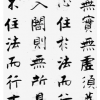 無實無虛須
心住於法而
入闇則無所
不住法而行